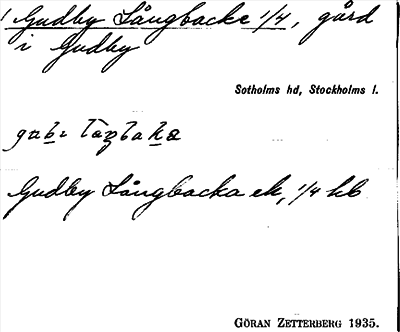 Gudby Långbacke 1/4, gård
i Gudby
Sotholms hd, Stockholms l.
Gudby Långbacka ek, 1/4 hb
GÖRAN ZETTERBERG 1935.